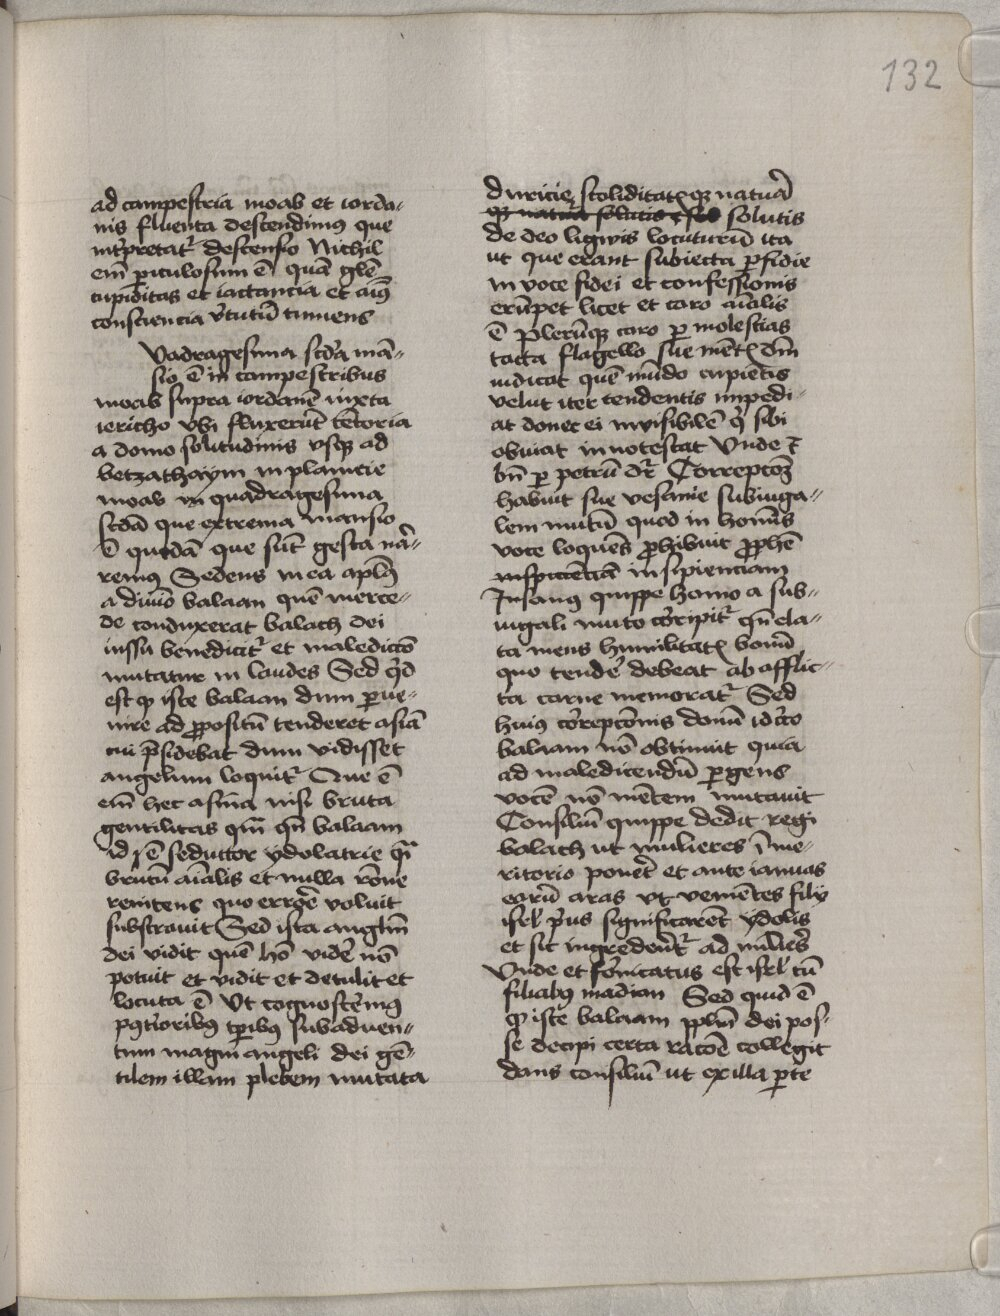 132
ad campestria moab et iorda-
nis fluenta descendimus que
int̄pretatᷣ descensio Nichil
em̄ ꝑiculosum ē quā glē
cupiditas et iactancia et aīꝰ
consciencia v̄tutū tumens
Vadragesima scd̄a mā-
sio ē in campestribus
moab supra iordanē iuxta
iericho vbi fluxerūt tētoria
a domo solitudinis vsqꝫ ad
betzathaym in planicie
moab in quadragesima
scdā que extrema mansio
ē quedā que sūt gesta nar̄-
remꝰ Sedens in ea aplꝰ
a diuīo balaam quē merce-
de conduxerat balach dei
iussu benedicitᷣ et maledictō
mutatur in laudes Sed qͥd
est ꝙ iste balaam dum ꝑue-
nire ad ꝓpositū tenderet asīa
cui p̄sidebat dum vidisset
angelum loquitᷣ Que ē
em̄ hec asīna nisi bruta
gentilitas qm̄ qn̄ balaam
id ē seductor ydolatrie qͣ
brutū aīalis et nulla rōne
renitens quo errōe voluit
substrauit Sed ista anglm̄
dei vidit quē hō vider̄ nō
potuit et vidit et detulit et
locuta ē Vt cognoscerem̄ꝰ
pꝰterioribꝰ tp̄ribꝰ sub aduen-
tum magni angeli dei gē-
tilem illam plebem mutata
duricie stoliditatꝭqꝫ natura
solutis
de deo ligwis locuturū ita
ut que erant subiecta ꝑfidie
in voce fidei et confessionis
erūpet licet et caro aīalis
ē Plerūqꝫ caro ꝑ molestias
tacta flagello sue mētꝭ dm̄
iudicat quē mūdo cupiētis
velut iter tendentis impedi-
at donec ei invisibilē qͥ sibi
obuiat innotescat Vnde ⁊
bn̄ ꝑ petrū dr̄ Correptōꝫ
habuit sue vesanie subiuga-
lem mutū quod in homīs
voce loquēs ꝓhibuit ꝓphē
insipiētiā insipienciam
Insanꝰ quippe homo a sub-
iugali muto cōripitᷣ qn̄ ela-
ta mens humilitatꝭ bonū
quo tendēr debeat ab afflic-
ta carne memoratᷣ Sed
huiꝰ correptōnis donū idcͦo
balaam nō obtinuit quia
ad maledicendū ꝑgens
vocē nō mētem mutauit
Consiliū quippe dedit regi
balach ut mulieres ī me-
ritorio ponēt et ante ianuas
earū aras vt veniētes filij
isrl̄ pͥus significarēt ydolis
et sic ingredēntᷣ ad mulier̄es
Vnde et fōrnicatus est isrl̄ cū
filiabꝰ madian Sed quid ē
ꝙ iste balaam ppl̄m dei pos-
se decipi certa racōe collegit
dans consiliū ut ex illa ꝑte